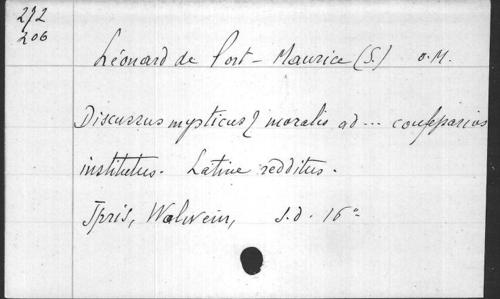 272
206
Léonard de Port-Maurice (S.) O.M.
Discursus mysticus & moralis ad ... confessarios
institutus. Latine redditus.
Ipris, Walwein, s.d. 16°